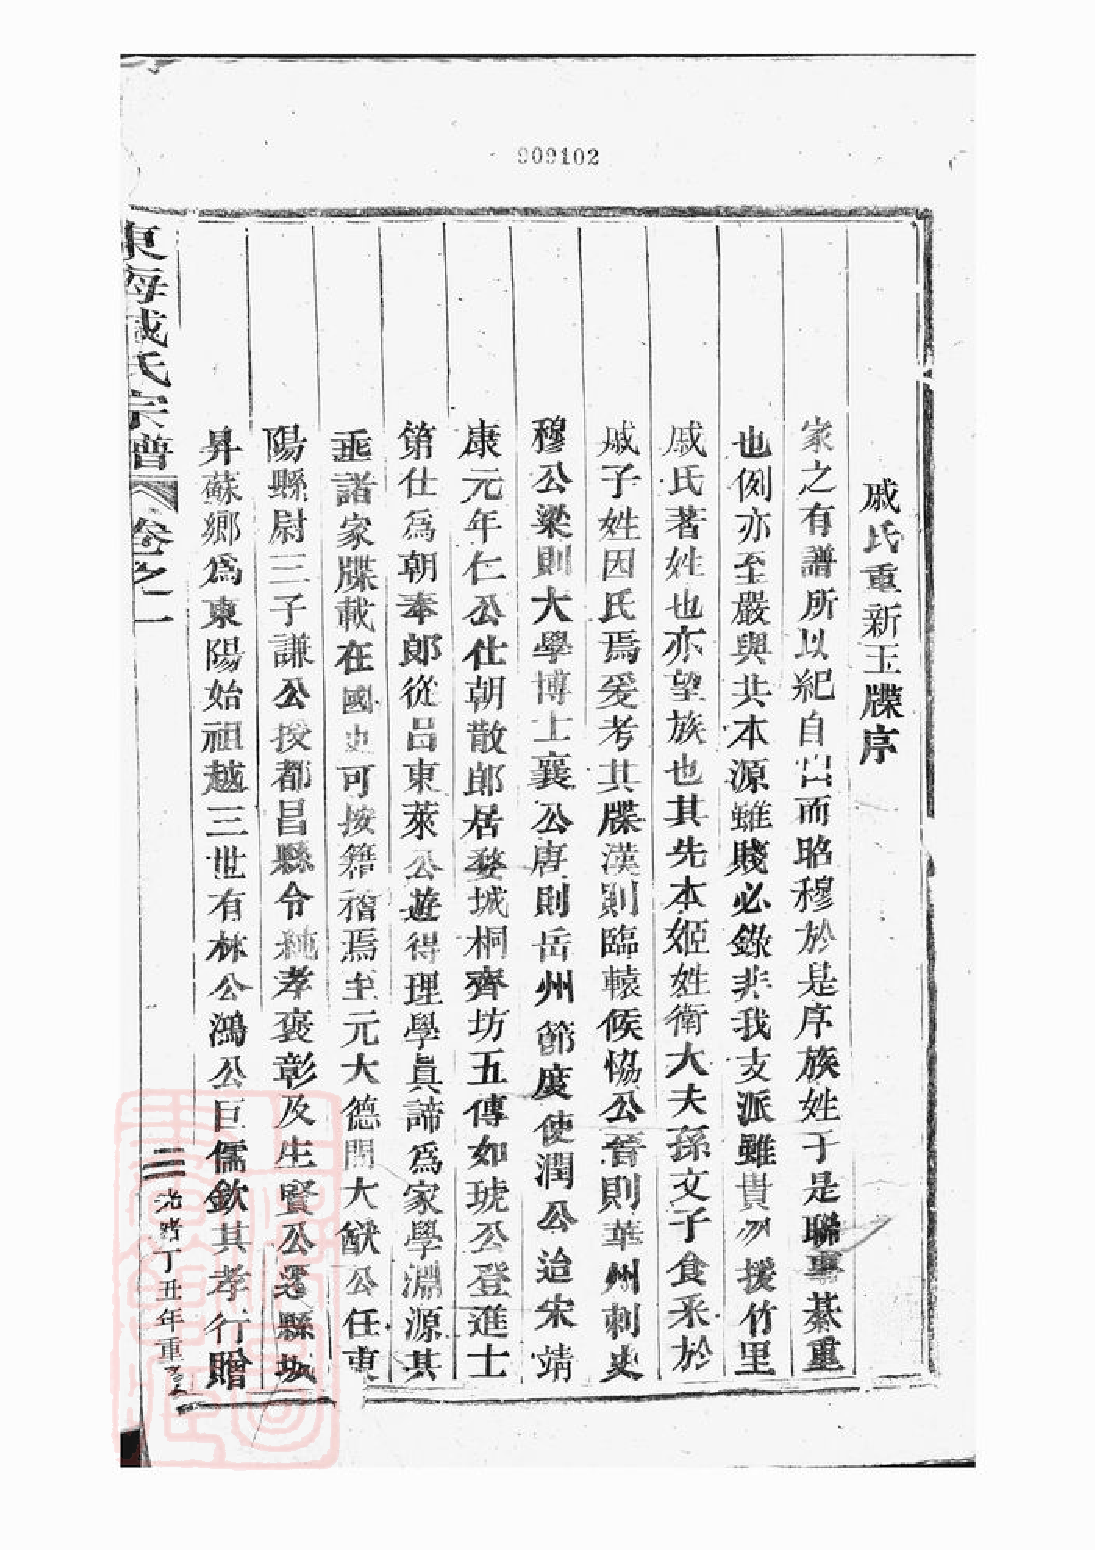 909102
戚氏重新玉牒序
家之有譜所以紀自出而昭穆於是序族姓于是聯事綦重
也例亦至嚴與共本源雖賤必錄非我支派雖貴勿援竹里
戚氏著姓也亦望族也其先本姬姓衛大夫孫文子食采於
戚子姓因氏焉爰考其牒漢則臨轅侯恊公晉則華州刺史
穆公梁則大學博士襄公唐則岳州節度使潤公迨宋靖
康元年仁公仕朝散郎居婺城桐齊坊五傳如琥公登進士
第仕為朝奉郎從呂東萊公遊得理學真諦為家學淵源其
垂諸家牒載在國史可按籍稽焉至元大德間大猷公任東
陽縣尉三子謙公授都昌縣令純孝褒彰及生賢公遷縣城
昇蘇鄉為東陽始祖越三世有林公鴻公巨儒欽其孝行贈
東海戚氏宗譜 卷之一
三 光緒丁丑年重